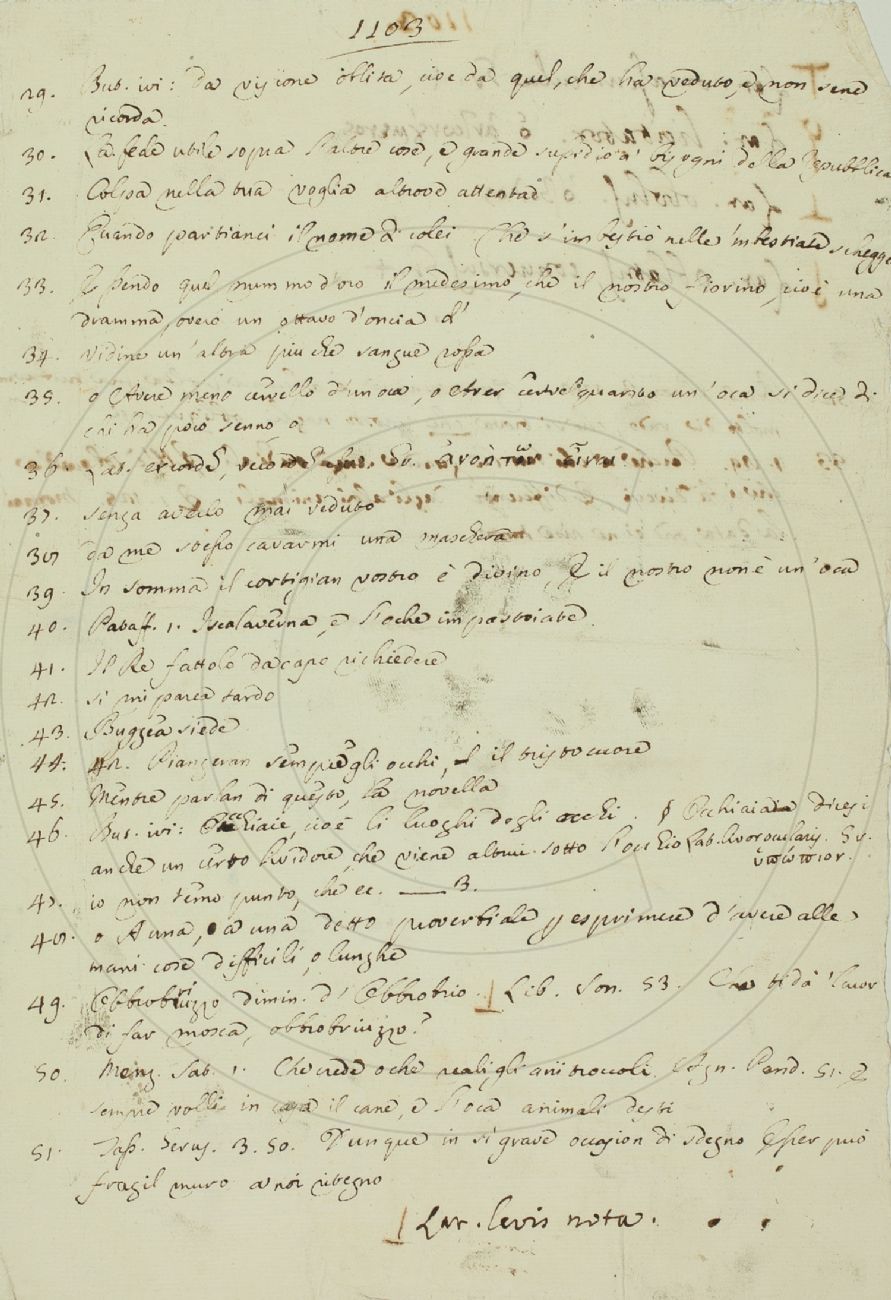 1103
29. But. ivi: da visione oblita, cioè da quel, che ha veduto, e non sene
ricorda.
30. La fede utile sopra l'altre cose, e grande susidio a' bisogni della Repubblica
31. Colpa nella tua voglia altrove attenta
32. Quando partianci il nome di colei Che s'imbestiò nelle 'mbestiate schegge
33. Essendo quel nummo d'oro il medesimo, che il nostro fiorino, cioè una
dramma, overo un ottavo d'oncia
34. vidine un'altra piu che sangue rossa
35. o Avere meno cervello d'un oca, o Aver cervel quanto un'oca si dice di
chi ha poco senno
36. Lat.
37. senza averlo mai veduto
38 da me stesso cavarmi una maschera
39. In somma il cortigian vostro è divino, E il nostro non è un'oca
40. Pataff. 1. Iscalaverna, e l'oche impastoiate.
41. Il Re fattolo da capo richiedere
42. si mi parea tardo
43. Buggea siede
44. 42. Piangeran sempre gli occhi, e il tristo cuore
45. Mentre parlan di questo, la novella
46. But. ivi: Occhiaie, cioè li luoghi degli occhi. Occhiaia dicesi
anche un certo lividore, che viene altrui sotto l'occhio Lat. livor ocularis. Gr.
ὑπώπιον.
47. io non temo punto, che ec. — 3.
48. o A una, a una detto proverbiale p esprimere d'avere alle
mani cose difficili, o lunghe
49. Obbrobriuzzo dimin. d'Obbrobrio. Lib. Son. 53. Chi ti dà 'l cuor
di far mosca, obbrobriuzzo?
50. Menz. Sat. 1. Che crede oche reali gli anitroccoli. Agn. Pand. 51. E
sempre volli in casa il cane, e l'oca animali desti
51. Tass. Gerus. 3. 50. Dunque in sì grave occasion di sdegno Esser può
fragil muro a noi ritegno
Lat. levis nota.